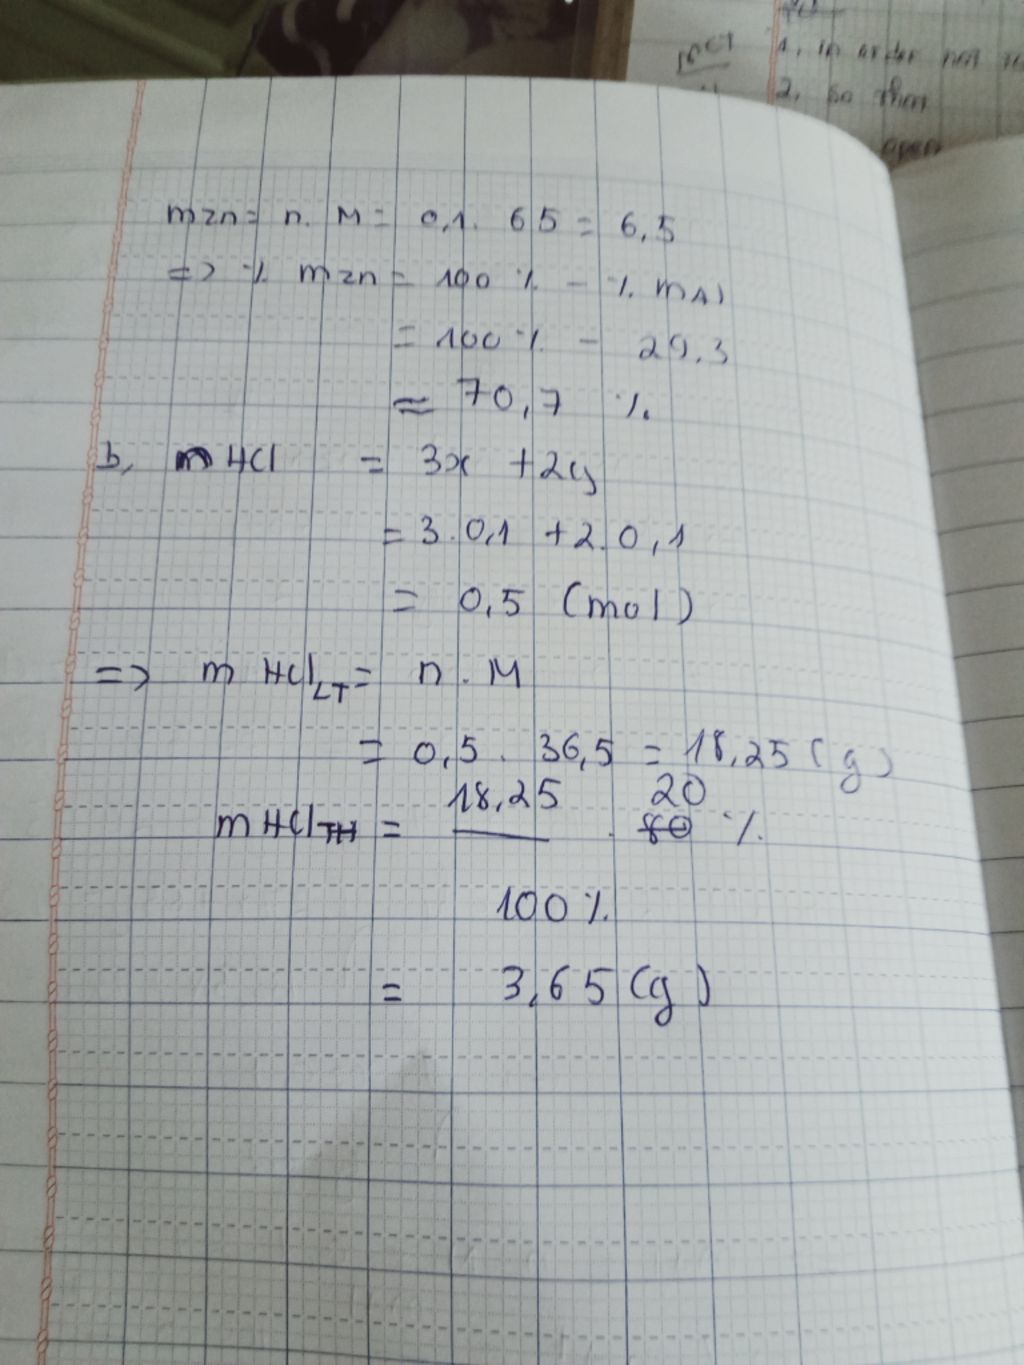 1, in order not
2, so that
open
mzn = n. M = 0,1. 65 = 6,5
=> % mzn = 100 % - % mAl
= 100 % - 29.3
≈ 70,7 %
b, nHCl = 3x + 2y
= 3.0,1 + 2.0,1
= 0,5 (mol)
=> m HCl LT = n. M
= 0,5. 36,5 = 18,25 (g)
18,25 20
mHCl TH = ——— . 80 %
100 %
= 3,65 (g)